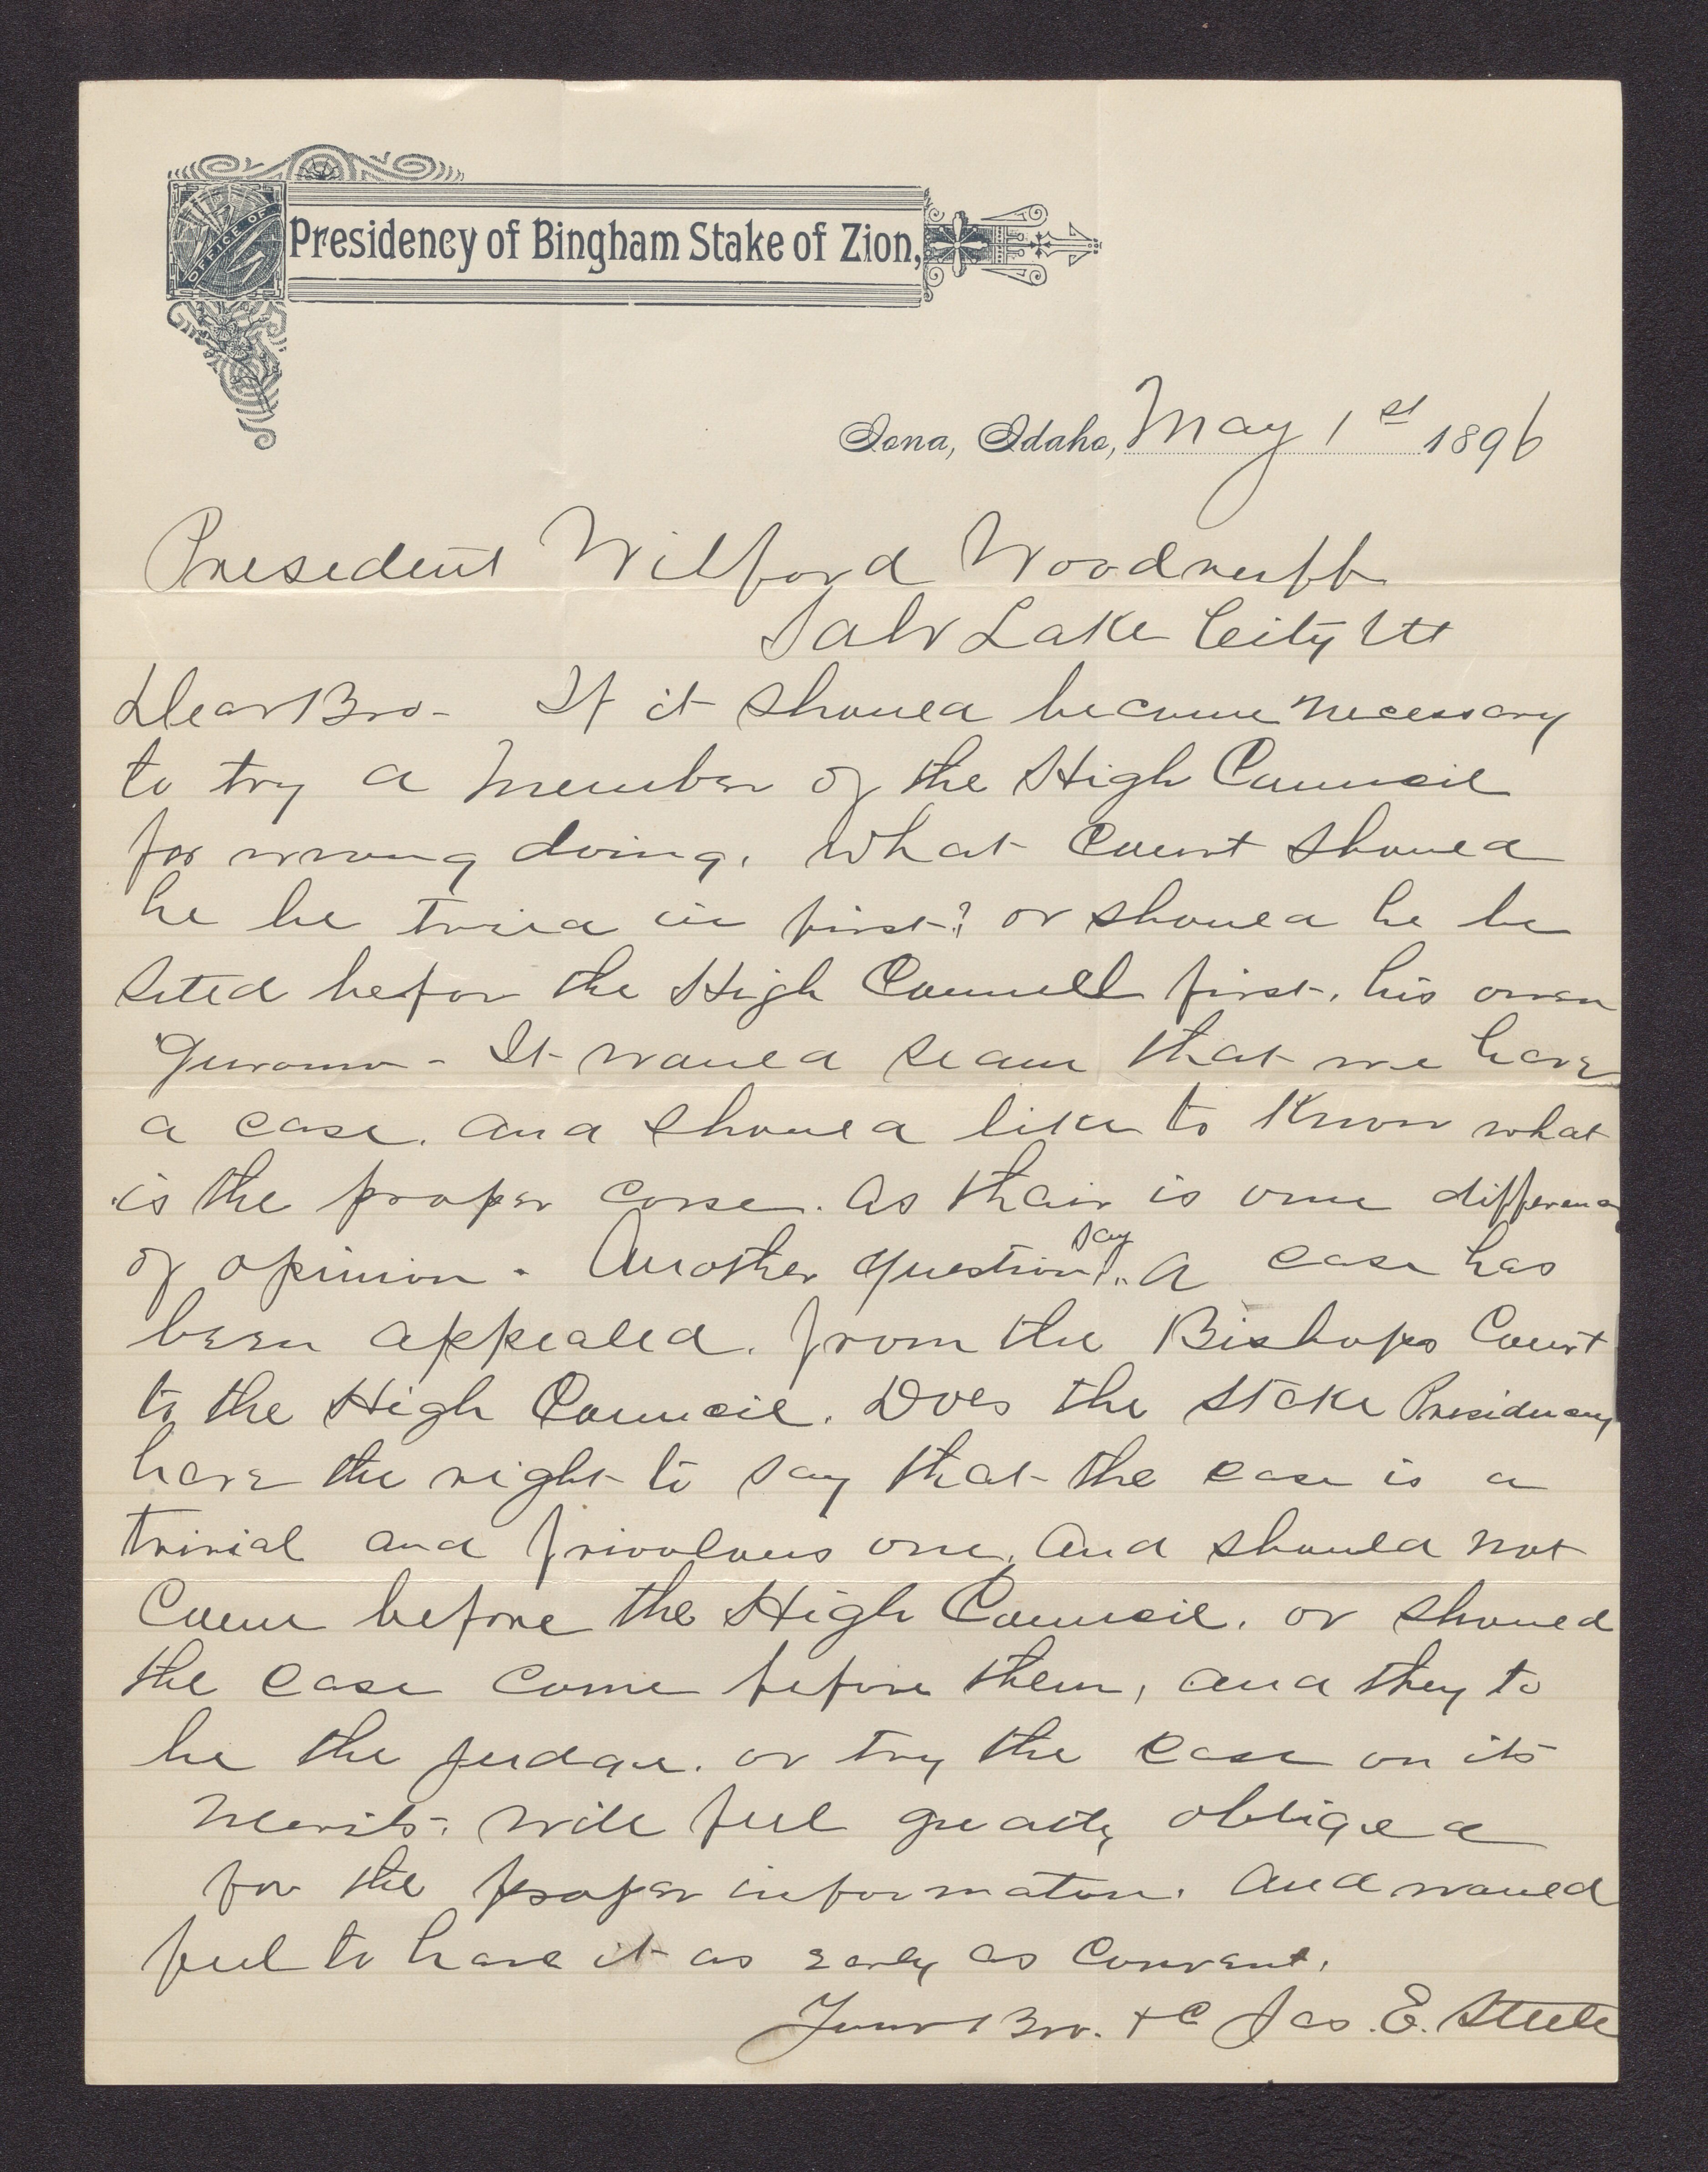 OFFICE OF
Presidency of Bingham Stake of Zion,
Iona, Idaho, May 1st 1896
President Wilford Woodruff
Salt Lake City Ut
Dear Bro- If it should become necessary
to try a member of the High Council
for wrong doing. what Court should
he be tried in first? or should he be
sited befor the High Councell first. his own
Quroum- It would seam that we have
a case. and should like to know what
is the proper corse. as thair is some difference
of opinion. Another question. say A case has
been appealed. from the Bishops Court
to the High Council. Does the Stake Presidency
have the right to say that the case is a
trivial and frivolous one, and should not
come before the High Council. or should
the case come before them, and they to
be the judge. or try the case on its
merits. Will feel greatly obliged
for the proper information. and would
feel to have it as early as convent.
Your Bro. &c Jas. E. Steele